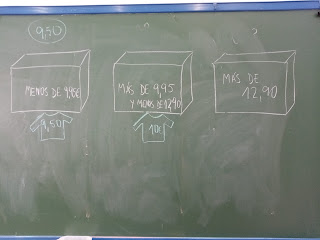 9,50
MENOS DE 9,95€
9,50
MÁS DE 9,95
Y MENOS DE 12,90
10€
MÁS DE
12,90